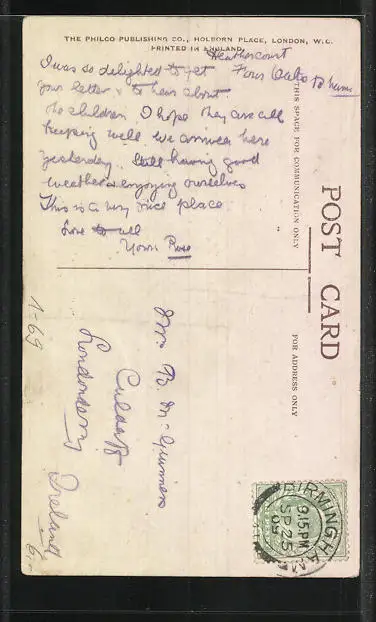 THE PHILCO PUBLISHING CO., HOLBORN PLACE, LONDON, W.C.
PRINTED IN ENGLAND.
Heathercourt
Four Oaks
I was so delighted to get
your letter & to hear about
the children. I hope they are all
keeping well we arrived here
yesterday. Still having good
weather & enjoying ourselves
This is a very nice place
Love to all
Yours Rose
THIS SPACE FOR COMMUNICATION ONLY
POST CARD
FOR ADDRESS ONLY
Mrs B. McGuinness
Culdaff
Londonderry
Ireland
1-69
6/-
BIRMINGHAM
9.15 PM
SP 25
09